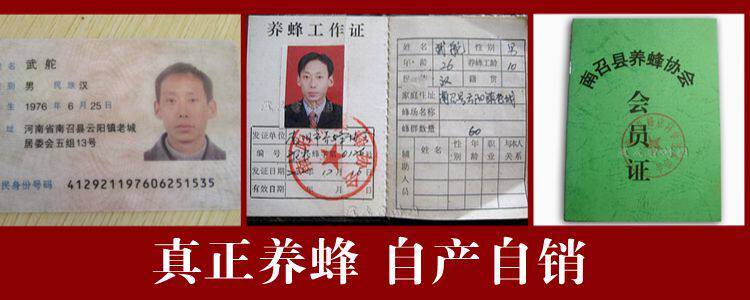 姓名 武 舵
性别 男 民族 汉
出生 1976 年 6 月 25 日
住址 河南省南召县云阳镇老城
居委会五组13号
公民身份号码 412921197606251535
养蜂工作证
发证单位
编 号
发证日期
有效日期
姓名 武舵 性别 男
年龄 26 养蜂工龄 10
民 汉 籍贯
家庭住址 南召县云阳镇老城
蜂场名称
蜂群数量 60
辅助人员
姓名 性别 年龄 职业 与本人关系
南召县养蜂协会
会员证
真正养蜂 自产自销